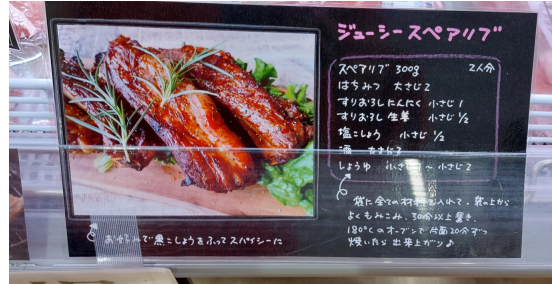 ジューシースペアリブ
スペアリブ 300g 2人分
はちみつ 大さじ2
すりおろしにんにく 小さじ1
すりおろし生姜 小さじ1/2
塩こしょう 小さじ1/2
酒 大さじ2
しょうゆ 小さじ1〜小さじ2
袋に全ての材料を入れて、袋の上から
よくもみこみ、30分以上置き、
180℃のオーブンで片面20分ずつ
焼いたら出来上がり♪
お好みで黒こしょうをふってスパイシーに